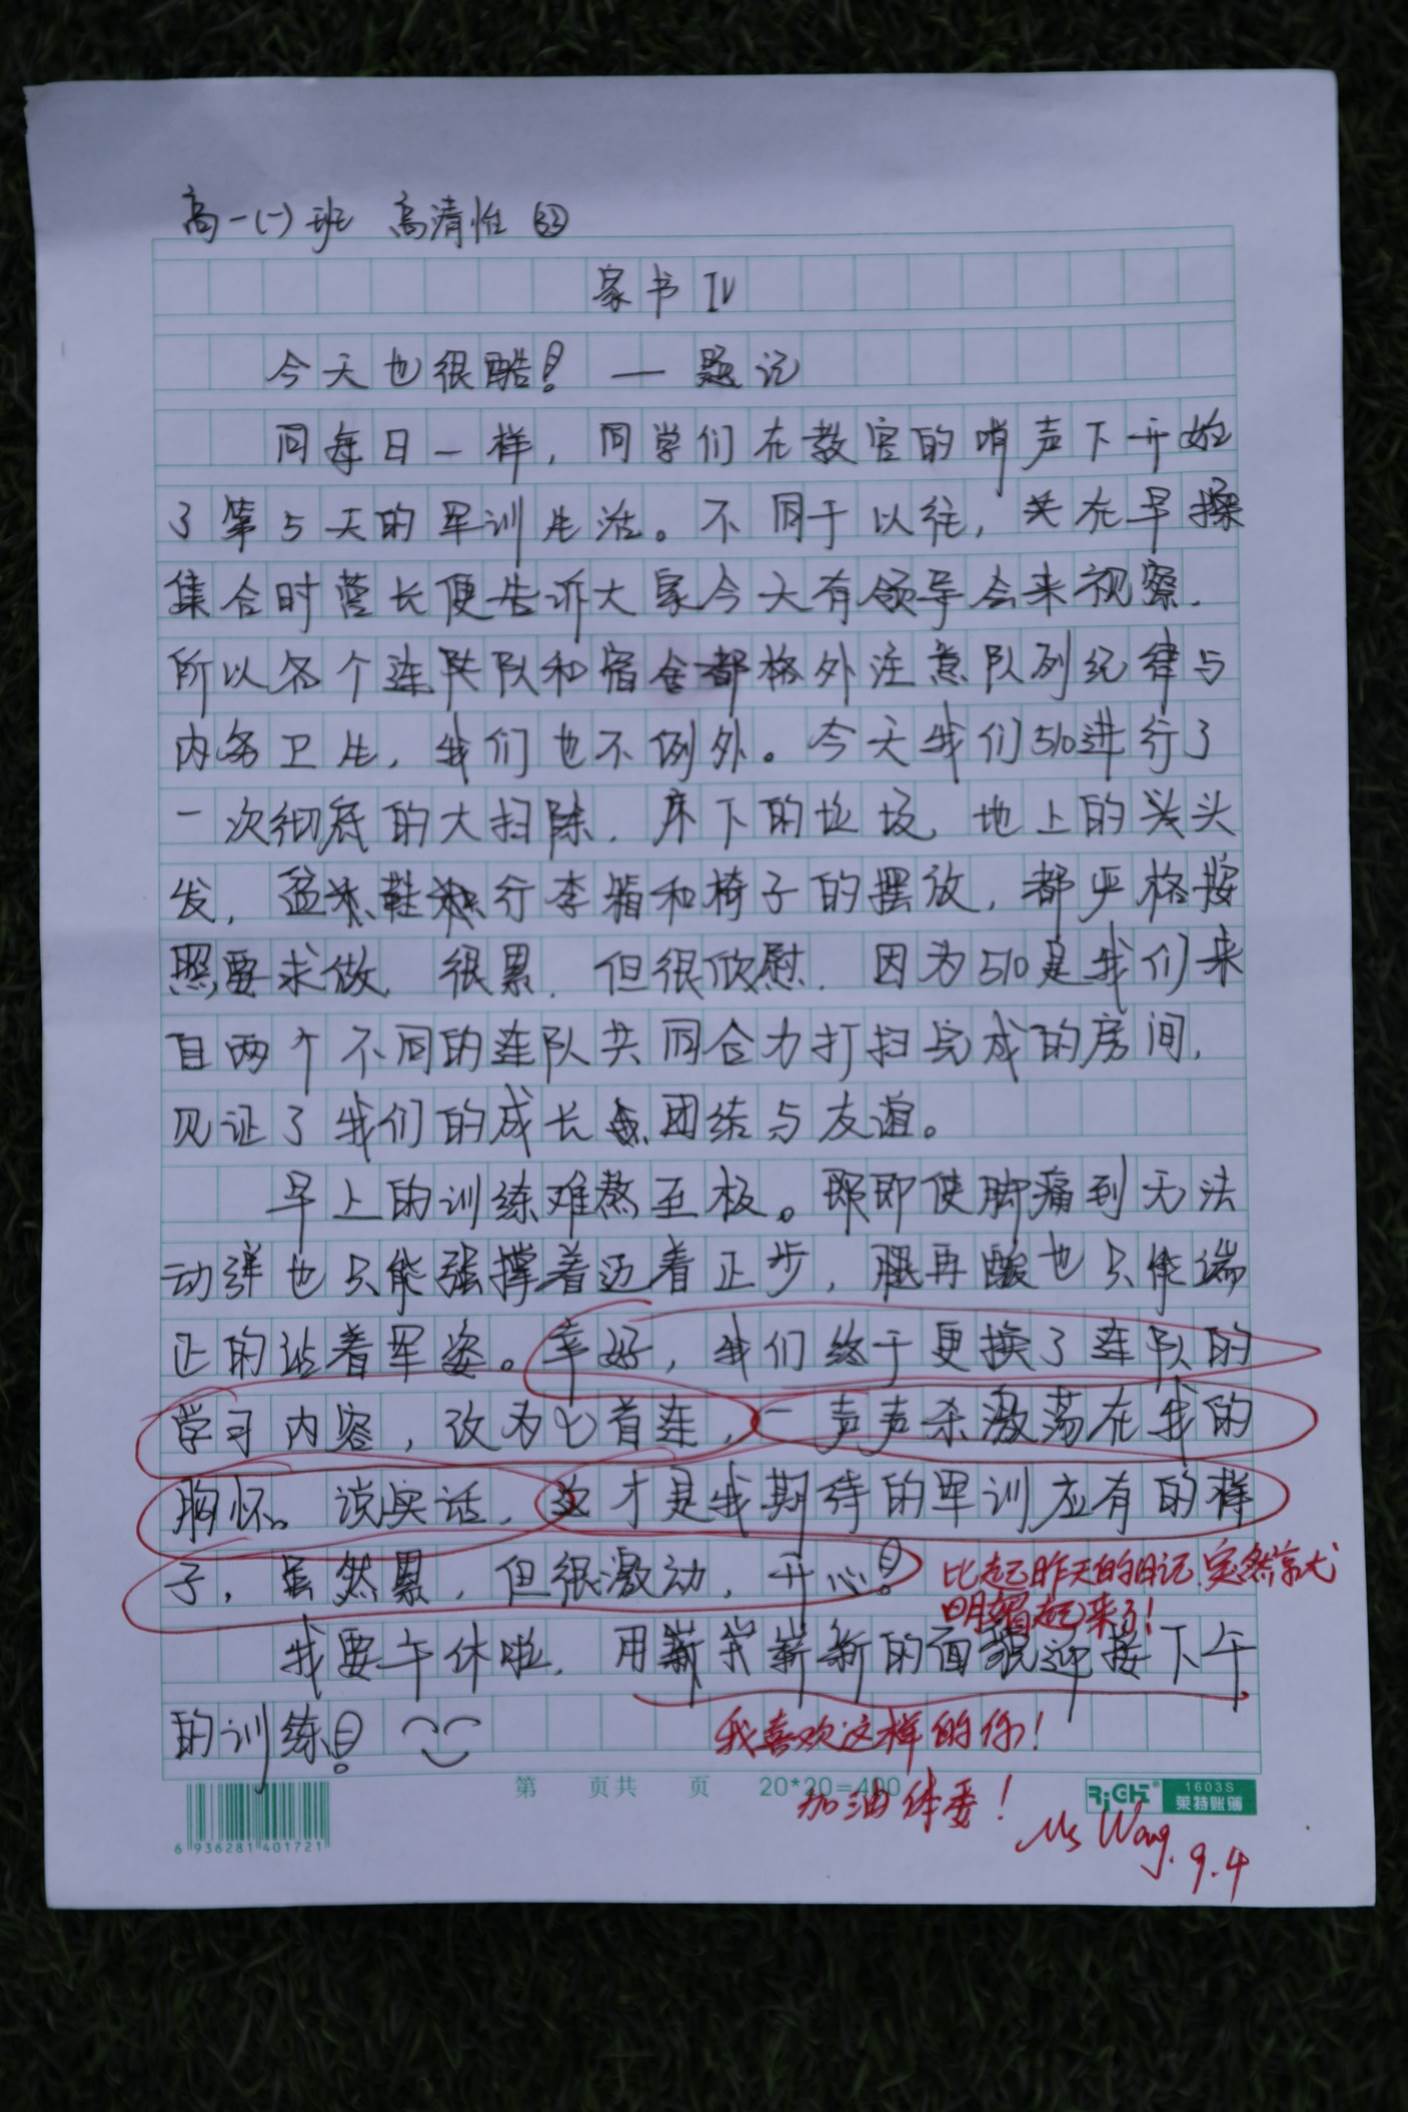 高一(一)班 高清怡
家书 IV
今天也很酷！ — 题记
同每日一样，同学们在教官的哨声下开始
了第5天的军训生活。不同于以往，在早操
集合时营长便告诉大家今天有领导会来视察，
所以各个连队和宿舍都格外注意队列纪律与
内务卫生，我们也不例外。今天我们510进行了
一次彻底的大扫除，床下的垃圾，地上的头
发，盆、鞋、行李箱和椅子的摆放，都严格按
照要求做，很累，但很欣慰，因为510是我们来
自两个不同的连队共同合力打扫完成的房间，
见证了我们的成长、团结与友谊。
早上的训练难熬至极。即使脚痛到无法
动弹也只能强撑着迈着正步，腿再酸也只能端
正的站着军姿。幸好，我们终于更换了连队的
学习内容，改为匕首连，一声声杀激荡在我的
胸怀。说实话，这才是我期待的军训应有的样
子，虽然累，但很激动，开心！
比起昨天的日记，突然就
明媚起来了！
我要午休啦，用崭新的面貌迎接下午
的训练！
我喜欢这样的你！
加油体委！
Ms Wang. 9.4
第 页共 页 20*20=400
RiGHT® 1603S
莱特账簿
6 936281 401721